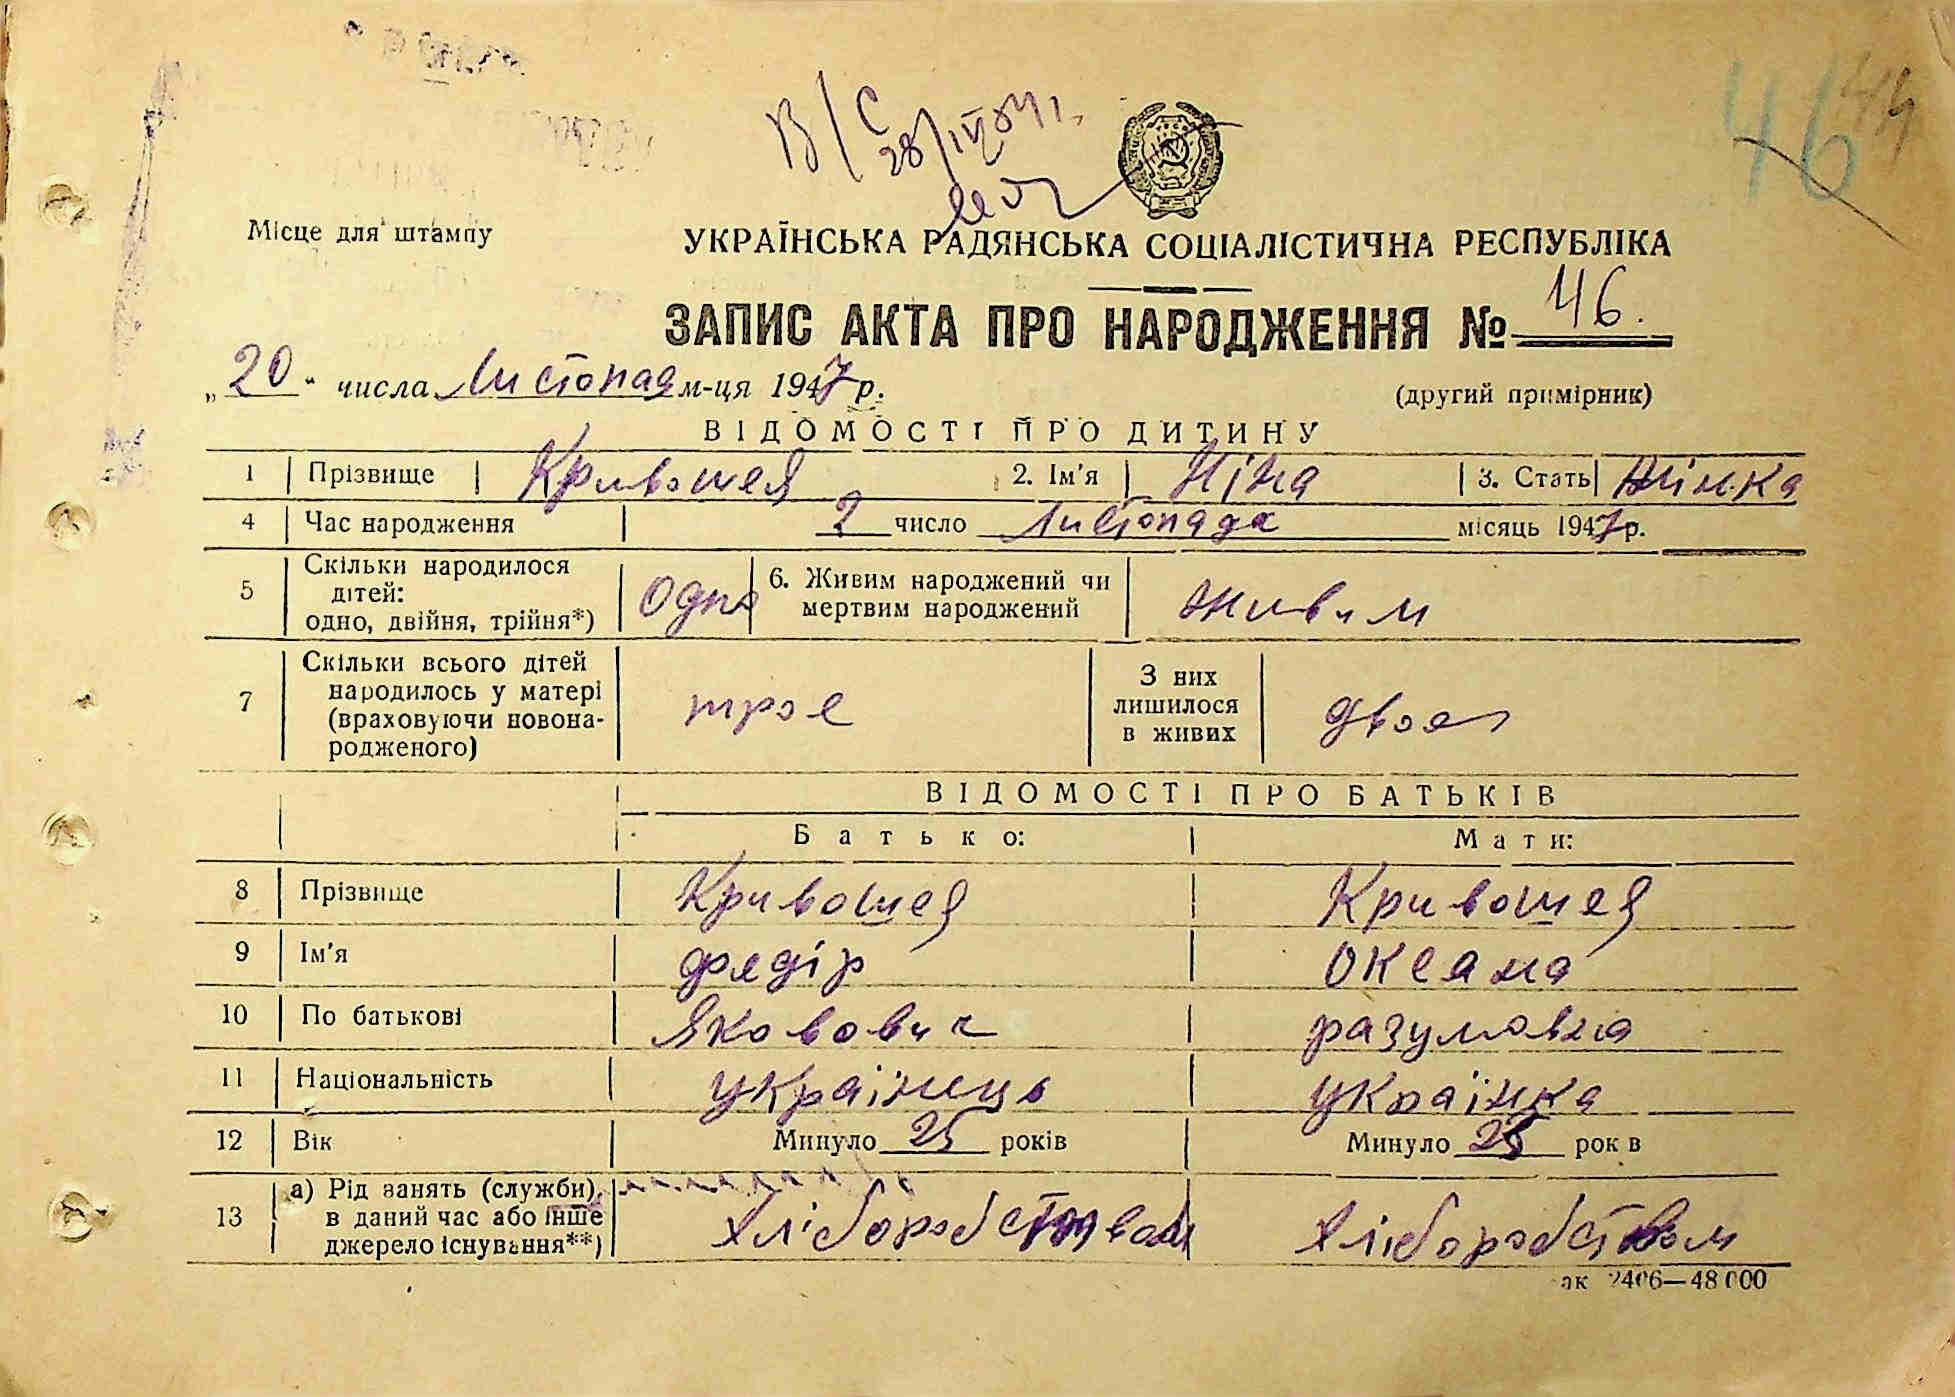 46 44
В/С
28/IV 84 г.
Місце для штампу
УКРАЇНСЬКА РАДЯНСЬКА СОЦІАЛІСТИЧНА РЕСПУБЛІКА
ЗАПИС АКТА ПРО НАРОДЖЕННЯ № 46.
„20" числа Листопад м-ця 1947 р.
(другий примірник)
ВІДОМОСТІ ПРО ДИТИНУ
1 Прізвище Кривошея 2. Ім'я Ніна 3. Стать Жінка
4 Час народження 2 число Листопада місяць 1947 р.
5 Скільки народилося дітей: одно, двійня, трійня*) Одно 6. Живим народжений чи мертвим народжений живим
7 Скільки всього дітей народилось у матері (враховуючи новона-родженого) троє З них лишилося в живих двоє
ВІДОМОСТІ ПРО БАТЬКІВ
Батько: Мати:
8 Прізвище Кривошея Кривошея
9 Ім'я Федір Оксана
10 По батькові Якович Разумовна
11 Національність українець українка
12 Вік Минуло 25 років Минуло 25 рок в
13 а) Рід занять (служби), в даний час або інше джерело існування**) Хліборобством Хліборобством
ак 2406—48000